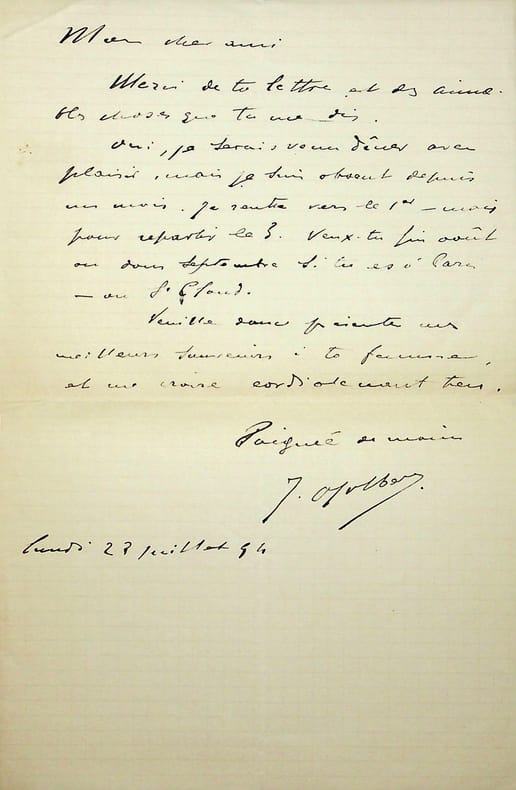 Mon cher ami
Merci de ta lettre et des aima-
bles choses que tu me dis.
Oui, je serais venu dîner avec
plaisir, mais je suis absent depuis
un mois. Je rentre vers le 1er — mais
pour repartir le 3. Veux-tu fin août
ou dans septembre si tu es à Paris
— ou St Cloud.
Veuille donc présenter mes
meilleurs souvenirs à ta femme,
et me croire cordialement tien.
Poignée de mains
J.
lundi 23 juillet 94